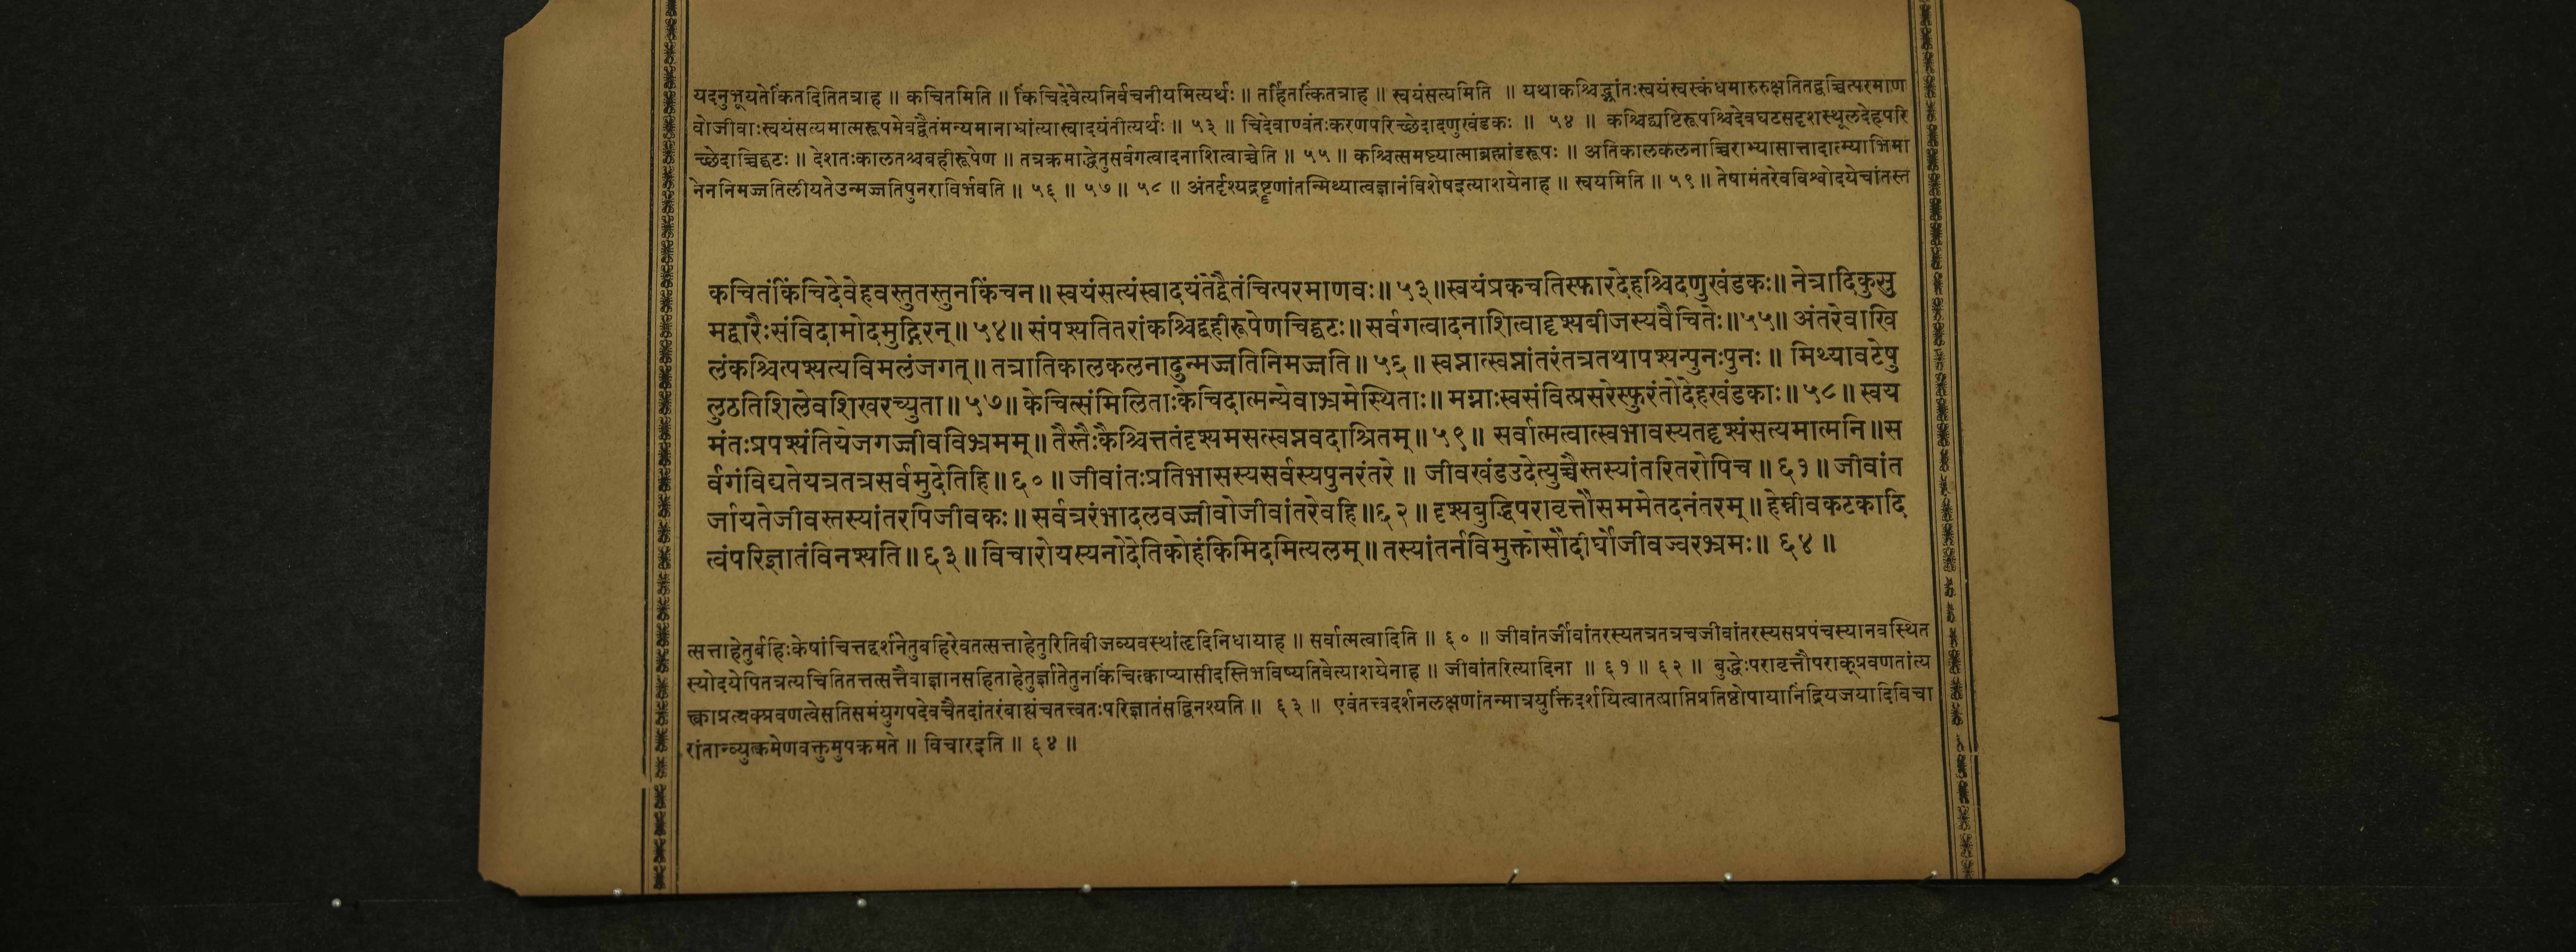 यदनुभूयतेकिंतदितितत्राह ॥ कचितमिति ॥ किंचिदेवेत्यनिर्वचनीयमित्यर्थः ॥ तर्हितत्किंतत्राह ॥ स्वयंसत्यमिति ॥ यथाकश्चिद्भ्रांतःस्वयंस्वस्कंधमारुरुक्षतितद्वच्चित्परमाण
वोजीवाःस्वयंसत्यमात्मरूपमेवद्वैतंमन्यमानाभ्रांत्यास्वादयंतीत्यर्थः ॥ ५३ ॥ चिदेवाण्वंतःकरणपरिच्छेदादणुखंडकः ॥ ५४ ॥ कश्चिद्यष्टिरूपश्चिदेवघटसदृशस्थूलदेहपरि
च्छेदाच्चिद्घटः ॥ देशतःकालतश्चबहीरूपेण ॥ तत्रक्रमाद्धेतुसर्वगत्वादनाशित्वाच्चेति ॥ ५५ ॥ कश्चित्समष्ट्यात्माब्रह्मांडरूपः ॥ अतिकालकलनाच्चिराभ्यासात्तादात्म्याभिमा
नेननिमज्जतिलीयतेउन्मज्जतिपुनराविर्भवति ॥ ५६ ॥ ५७ ॥ ५८ ॥ अंतर्दृश्यद्रष्टॄणांतन्मिथ्यात्वज्ञानंविशेषइत्याशयेनाह ॥ स्वयमिति ॥ ५९ ॥ तेषामंतरेवविश्वोदयेचांतस्त
कचितंकिंचिदेवेहवस्तुतस्तुनकिंचन ॥ स्वयंसत्यंस्वादयंतेद्वैतंचित्परमाणवः ॥ ५३ ॥ स्वयंप्रकचतिस्फारदेहश्चिदणुखंडकः ॥ नेत्रादिकुसु
मद्वारैःसंविदामोदमुद्गिरन् ॥ ५४ ॥ संपश्यतितरांकश्चिद्बहीरूपेणचिद्घटः ॥ सर्वगत्वादनाशित्वाद्दृश्यबीजस्यवैचितेः ॥ ५५ ॥ अंतरेवाखि
लंकश्चित्पश्यत्यविमलंजगत् ॥ तत्रातिकालकलनादुन्मज्जतिनिमज्जति ॥ ५६ ॥ स्वप्नात्स्वप्नांतरंतत्रतथापश्यन्पुनःपुनः ॥ मिथ्यावटेषु
लुठतिशिलेवशिखरच्युता ॥ ५७ ॥ केचित्संमिलिताःकेचिदात्मन्येवाभ्रमेस्थिताः ॥ मग्नाःस्वसंवित्प्रसरेस्फुरंतोदेहखंडकाः ॥ ५८ ॥ स्वय
मंतःप्रपश्यंतियेजगज्जीवविभ्रमम् ॥ तैस्तैःकैश्चित्ततंदृश्यमसत्स्वप्नवदाश्रितम् ॥ ५९ ॥ सर्वात्मत्वात्स्वभावस्यतद्दृश्यंसत्यमात्मनि ॥ स
र्वगंविद्यतेयत्रतत्रसर्वमुदेतिहि ॥ ६० ॥ जीवांतःप्रतिभासस्यसर्वस्यपुनरंतरे ॥ जीवखंडउदेत्युच्चैस्तस्यांतरितरोपिच ॥ ६१ ॥ जीवांत
र्जायतेजीवस्तस्यांतरपिजीवकः ॥ सर्वत्ररंभादलवज्जीवोजीवांतरेवहि ॥ ६२ ॥ दृश्यबुद्धिपरावृत्तौसममेतदनंतरम् ॥ हेम्नीवकटकादि
त्वंपरिज्ञातंविनश्यति ॥ ६३ ॥ विचारोयस्यनोदेतिकोहंकिमिदमित्यलम् ॥ तस्यांतर्नविमुक्तोसौदीर्घोजीवज्वरभ्रमः ॥ ६४ ॥
त्सत्ताहेतुर्बहिःकेषांचित्तद्दर्शनेतुबहिरेवतत्सत्ताहेतुरितिबीजव्यवस्थांहृदिनिधायाह ॥ सर्वात्मत्वादिति ॥ ६० ॥ जीवांतर्जीवांतरस्यतत्रतत्रचजीवांतरस्यसप्रपंचस्यानवस्थित
स्योदयेपितत्रत्यचितितत्तत्सत्तैवाज्ञानसहिताहेतुर्ज्ञातेतुनकिंचित्क्वाप्यासीदस्तिभविष्यतिवेत्याशयेनाह ॥ जीवांतरित्यादिना ॥ ६१ ॥ ६२ ॥ बुद्धेःपरावृत्तौपराक्प्रवणतांत्य
क्त्वाप्रत्यक्प्रवणत्वेसतिसमंयुगपदेवचैतदांतरंबाह्यंचतत्त्वतःपरिज्ञातंसद्विनश्यति ॥ ६३ ॥ एवंतत्त्वदर्शनलक्षणांतन्मात्रयुक्तिंदर्शयित्वातत्प्राप्तिप्रतिष्ठोपायानिंद्रियजयादिविचा
रांतान्व्युत्क्रमेणवक्तुमुपक्रमते ॥ विचारइति ॥ ६४ ॥